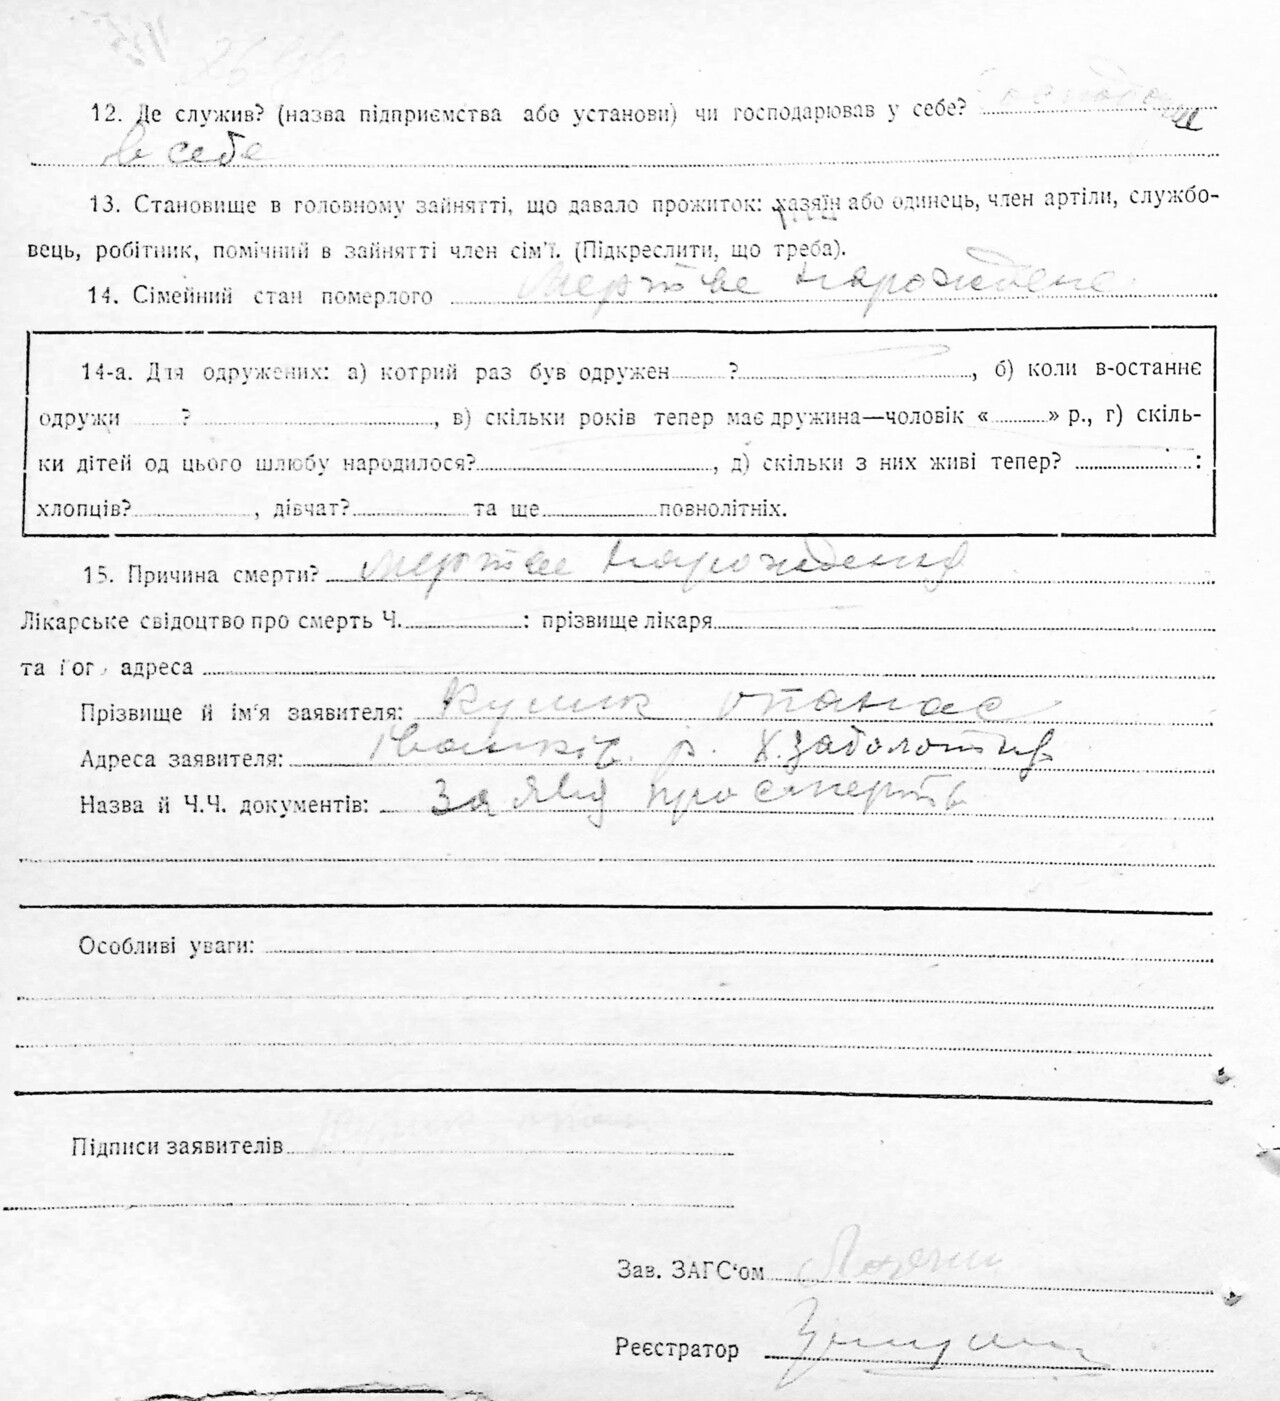 12. Де служив? (назва підприємства або установи) чи господарював у себе?
в себе
13. Становище в головному зайнятті, що давало прожиток: хазяїн або одинець, член артіли, службо-
вець, робітник, помічний в зайнятті член сім'ї. (Підкреслити, що треба).
14. Сімейний стан померлого мертве народжене
14-а. Для одружених: а) котрий раз був одружен ?, б) коли в-останнє
одружи ?, в) скільки років тепер має дружина—чоловік « » р., г) скіль-
ки дітей од цього шлюбу народилося?, д) скільки з них живі тепер? :
хлопців?, дівчат? та ще повнолітніх.
15. Причина смерти? мертве народження
Лікарське свідоцтво про смерть Ч. : прізвище лікаря
та адреса
Прізвище й ім'я заявителя: Кулик Опанас
Адреса заявителя: р. х. Заболотів
Назва й Ч.Ч. документів: Заява про смерть
Особливі уваги:
Підписи заявителів
Зав. ЗАГС'ом
Реєстратор